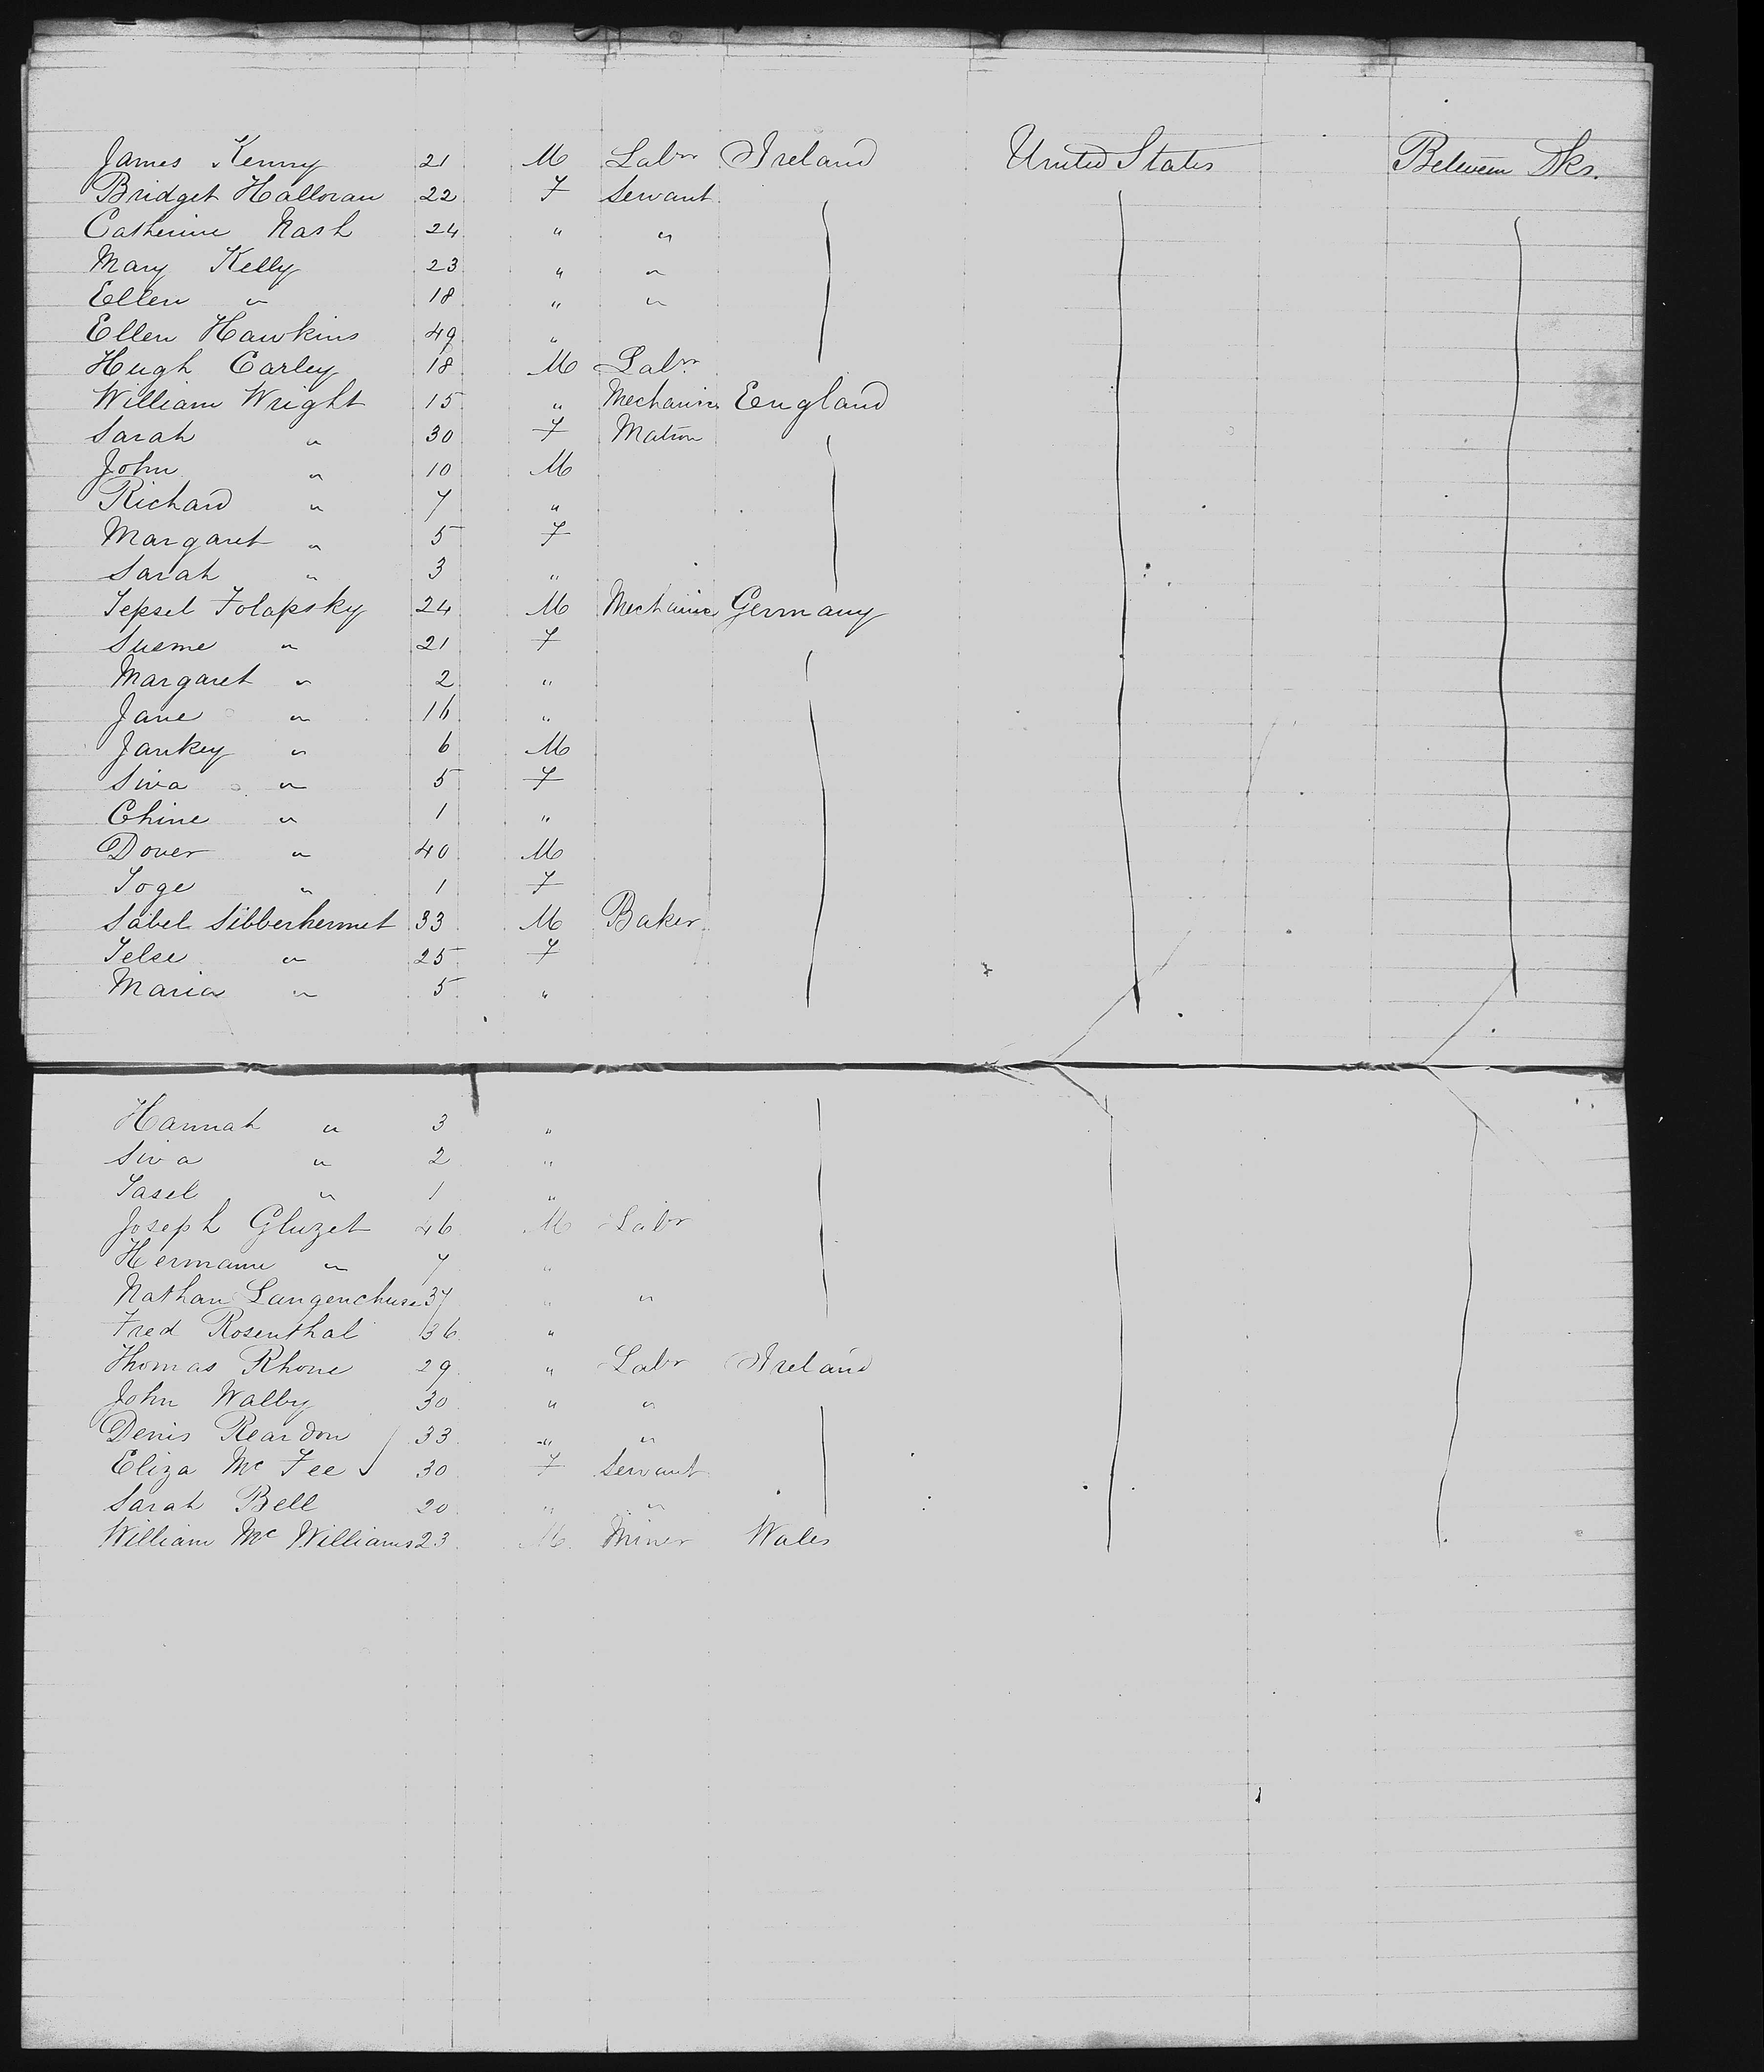 James Kenny 21 M Labr Ireland United States Between Dks.
Bridget Halloran 22 F Servant
Catherine Nash 24 " "
Mary Kelly 23 " "
Ellen " 18 " "
Ellen Hawkins 49 "
Hugh Carley 18 M Labr
William Wright 15 " Mechanic England
Sarah " 30 F Matron
John " 10 M
Richard " 7 "
Margaret " 5 F
Sarah " 3 "
Tepsel Folapsky 24 M Mechanic Germany
Sueme " 21 F
Margaret " 2 "
Jane " 16 "
Jankey " 6 M
Siva " 5 F
Chine " 1 "
Dover " 40 M
Toge " 1 F
Sabel Sibberhermet 33 M Baker
Telse " 25 F
Maria " 5 "
Hannah " 3 "
Siva " 2 "
Tasel " 1 "
Joseph Gluzet 46 M Labr
Hermann " 7 "
Nathan Langenchuse 37 " "
Fred Rosenthal 36 "
Thomas Rhone 29 " Labr Ireland
John Walby 30 " "
Denis Reardon 33 " "
Eliza Mc Fee 30 F Servant
Sarah Bell 20 " "
William Mc Williams 23 M Miner Wales